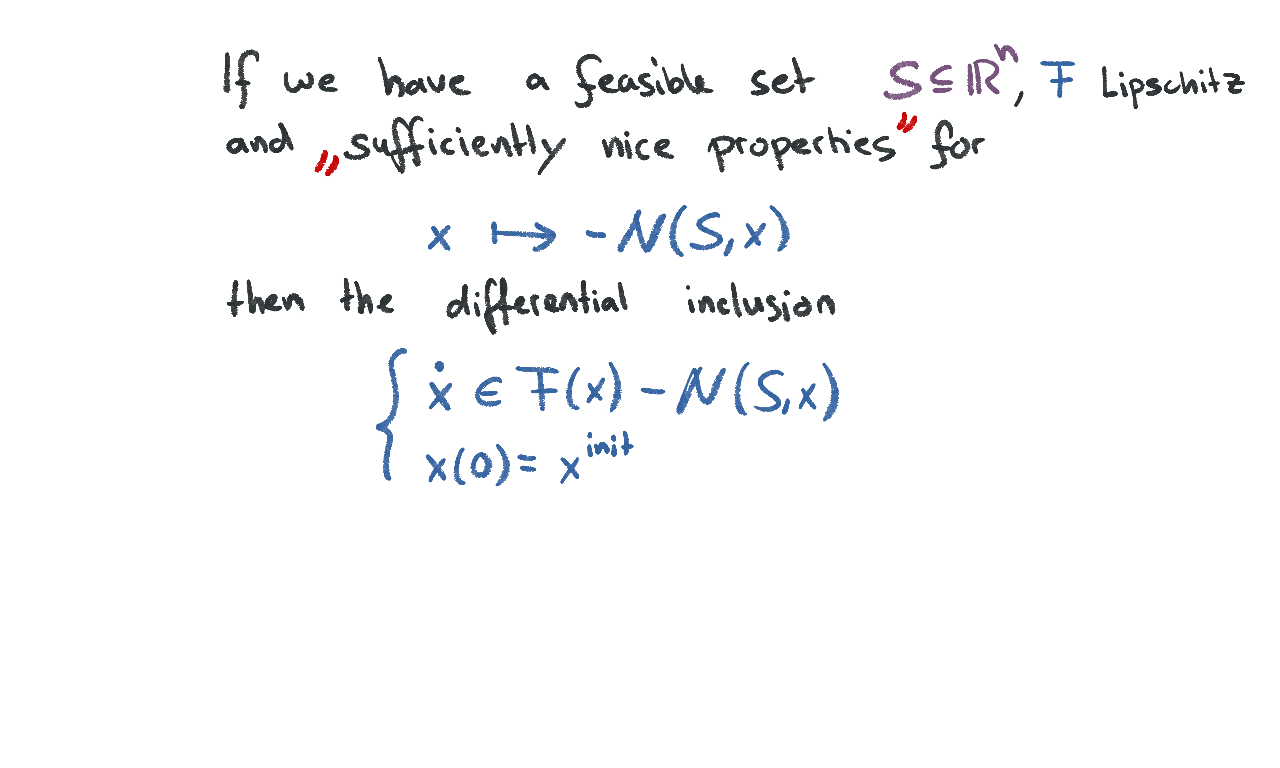 If we have a feasible set S ⊆ ℝⁿ, F Lipschitz
and „sufficiently nice properties" for
x ↦ -N(S,x)
then the differential inclusion
{ ẋ ∈ F(x) - N(S,x)
x(0) = x^init